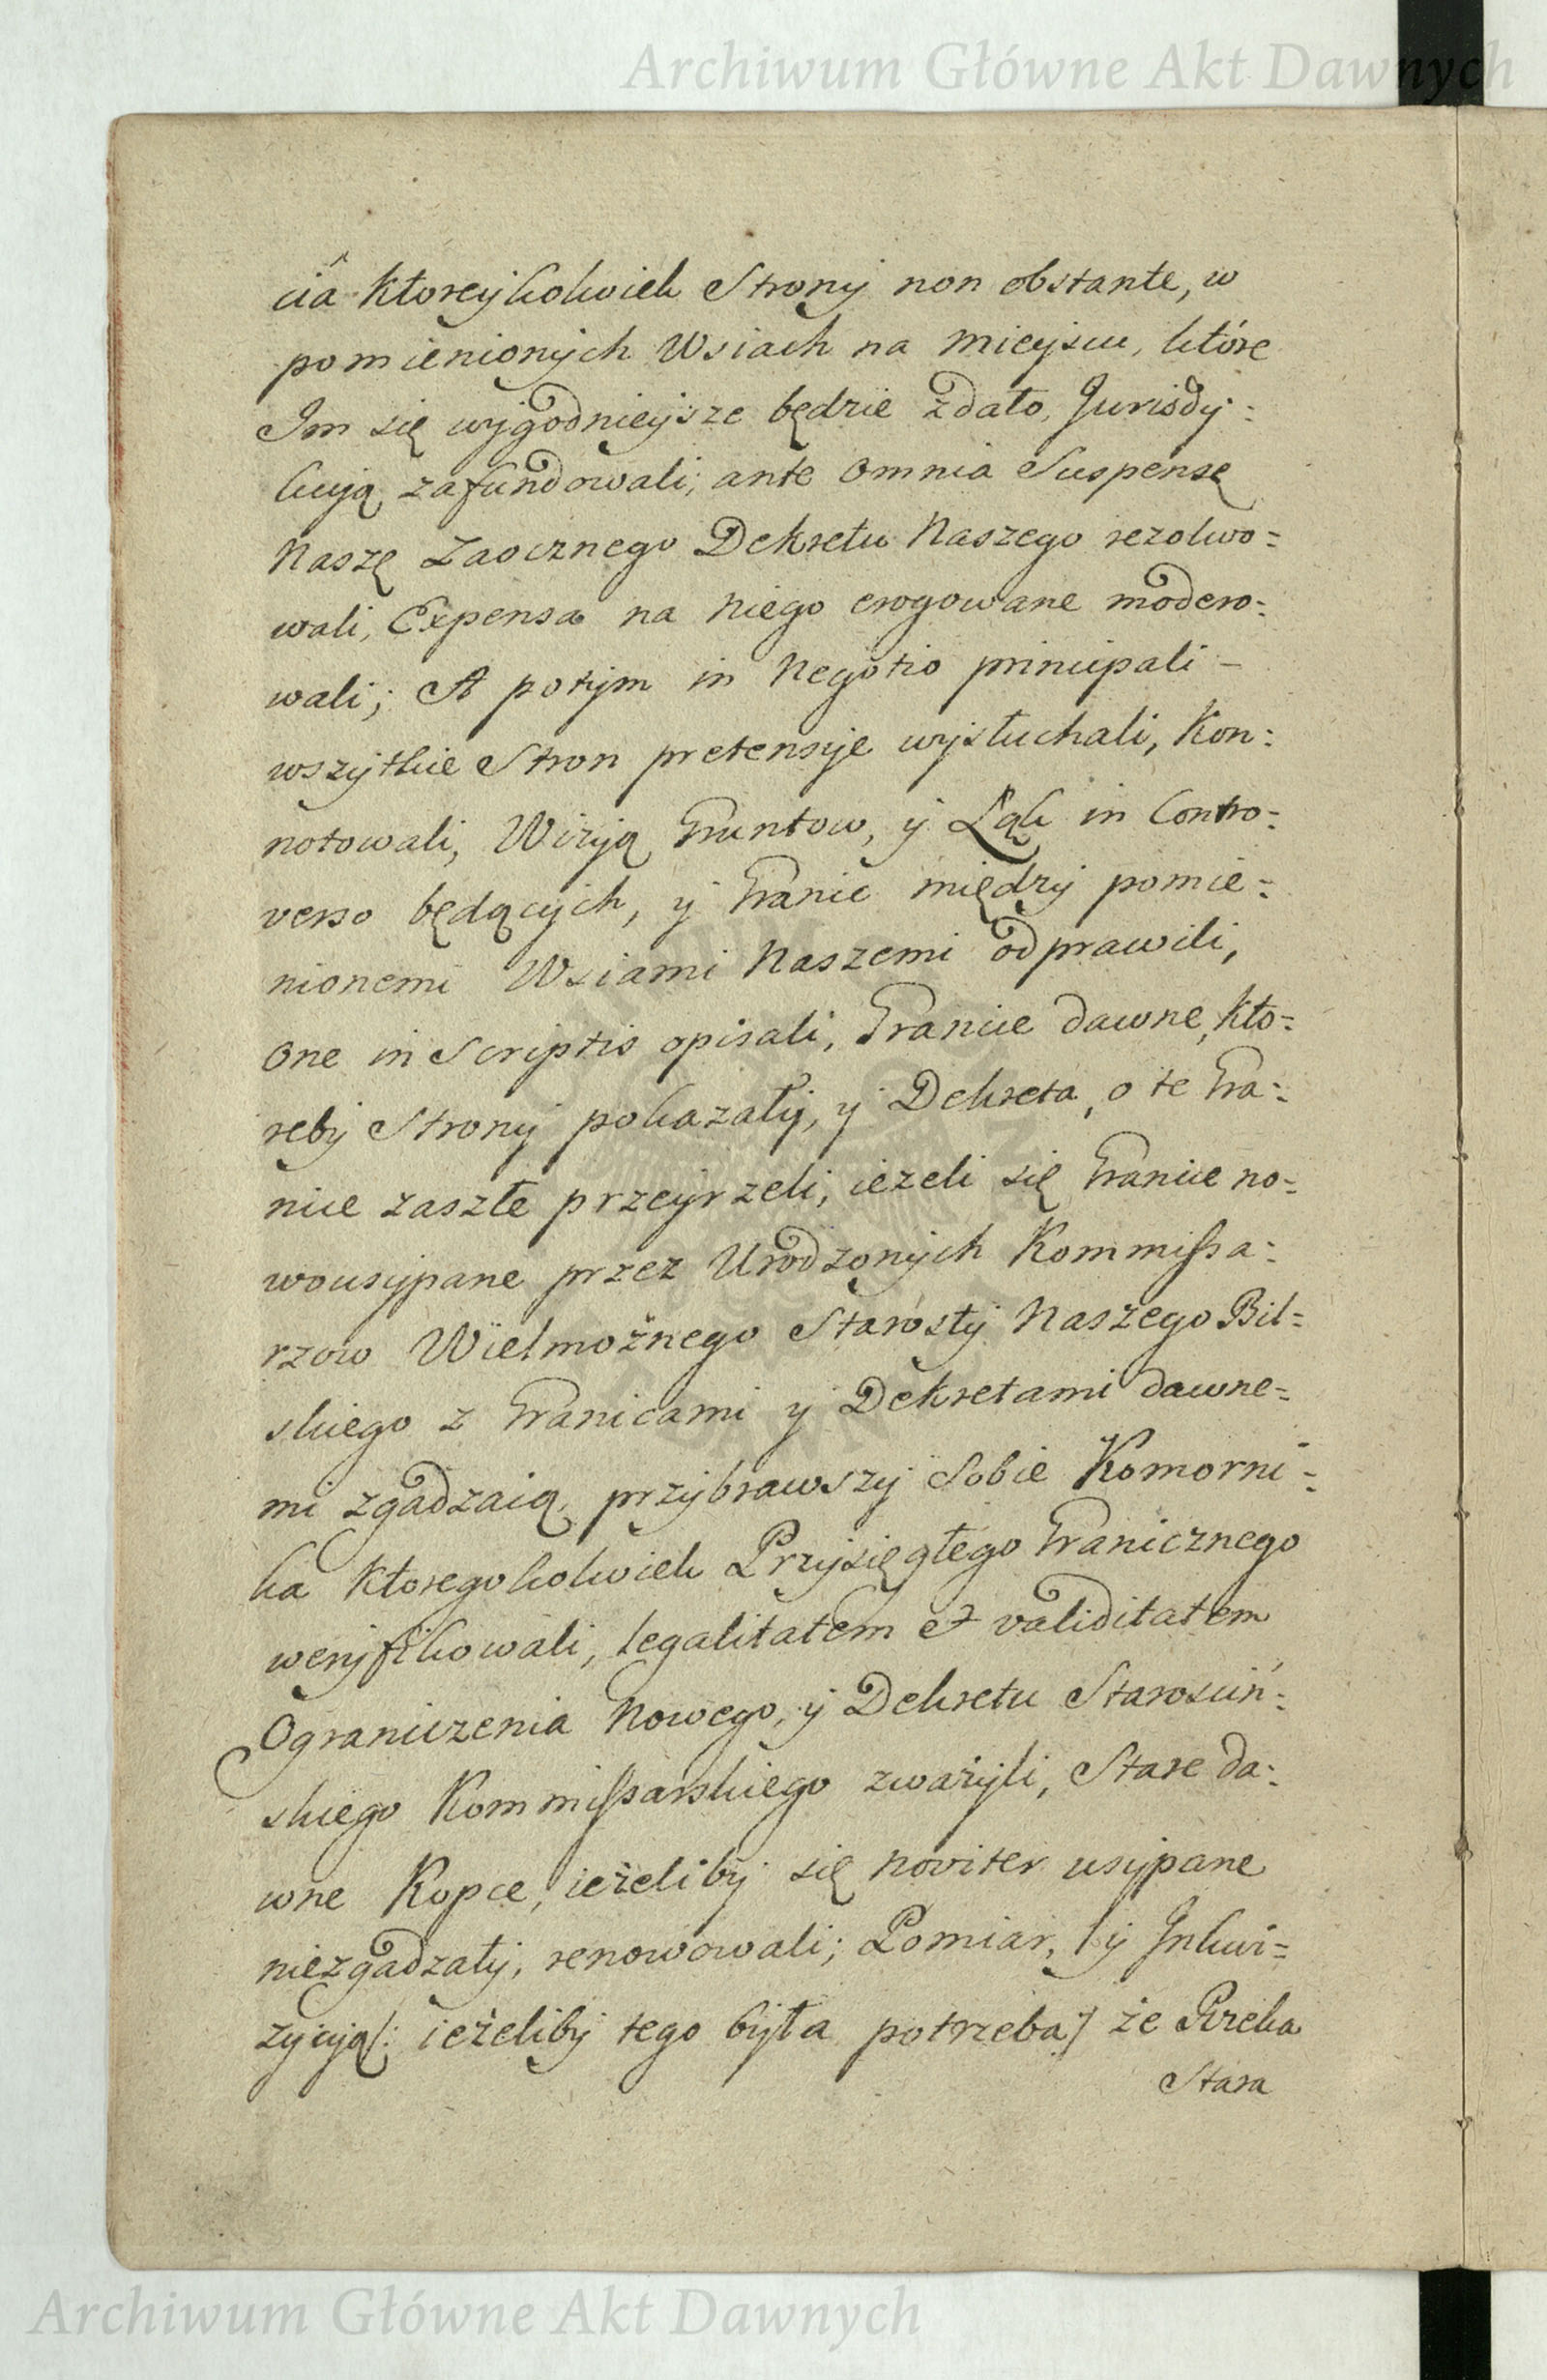 Archiwum Główne Akt Dawnych
ciâ Ktoreykolwiek Strony non obstante, w
pomienionych Wsiach na Mieyscu, które
Im się wygodnieysze będzie zdało, Jurisdy:
kcyą zafundowali, ante Omnia Suspensę
Naszę Zaocznego Dekretu Naszego rezolwo=
wali, Expensa na Niego erogowane modero=
wali; A potym in Negotio principali –
wszytkie Stron pretensye wysłuchali, Kon:
notowali, Wizyą Gruntow, y Łąk in Contro=
verso będących, y Granic między pomie=
nionemi Wsiami Naszemi odprawili,
One in Scriptis opisali, Granice dawne, Kto=
reby Strony pokazały, y Dekreta, o te Gra=
nice zaszłe przeyrzeli, ieżeli się Granice no=
wousypane przez Urodzonych Kommissa=
rzow Wielmożnego Starosty Naszego Bil=
skiego z Granicami y Dekretami dawne=
mi zgadzaią, przybrawszy Sobie Komorni=
ka Ktoregokolwiek Przysięgłego Granicznego
weryfikowali, legalitatem et validitatem
Ograniczenia Nowego, y Dekretu Starościń:
skiego Kommissarskiego zważyli, Stare da=
wne Kopce, ieżeliby się Noviter usypane
niezgadzały, renowowali; Pomiar, y Inkwi=
zycyą /: ieżeliby tego była potrzeba:/ że Rzeka
Stara
Archiwum Główne Akt Dawnych